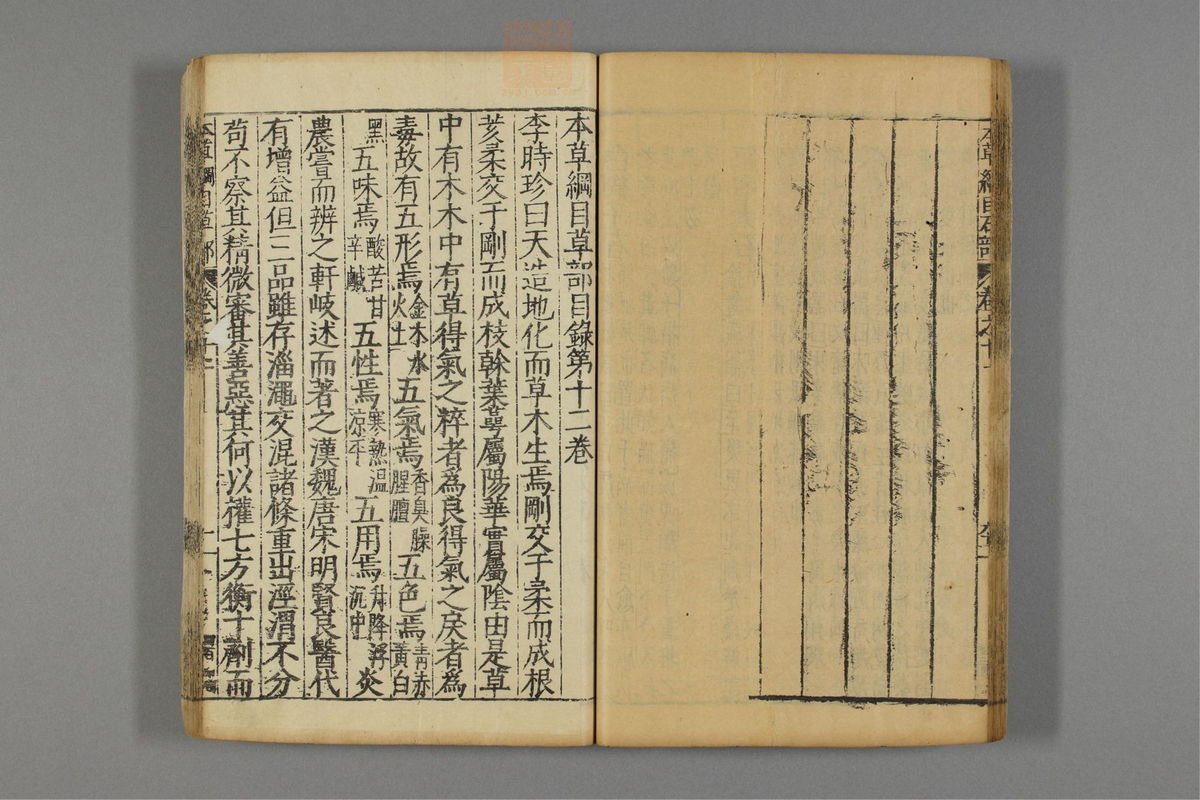 本草綱目石部 卷之十一
本草綱目草部目錄第十二卷
李時珍曰天造地化而草木生焉剛交于柔而成根
荄柔交于剛而成枝幹葉萼屬陽華實屬陰由是草
中有木木中有草得氣之粹者爲良得氣之戾者爲
毒故有五形焉金木水火土五氣焉香臭臊腥膻五色焉青赤黃白
黑五味焉酸苦甘辛鹹五性焉寒熱温涼平五用焉升降浮沉中炎
農嘗而辨之軒岐述而著之漢魏唐宋明賢良醫代
有增益但三品雖存淄澠交混諸條重出涇渭不分
苟不察其精微審其善惡其何以權七方衡十劑而
本草綱目草部 卷之十二